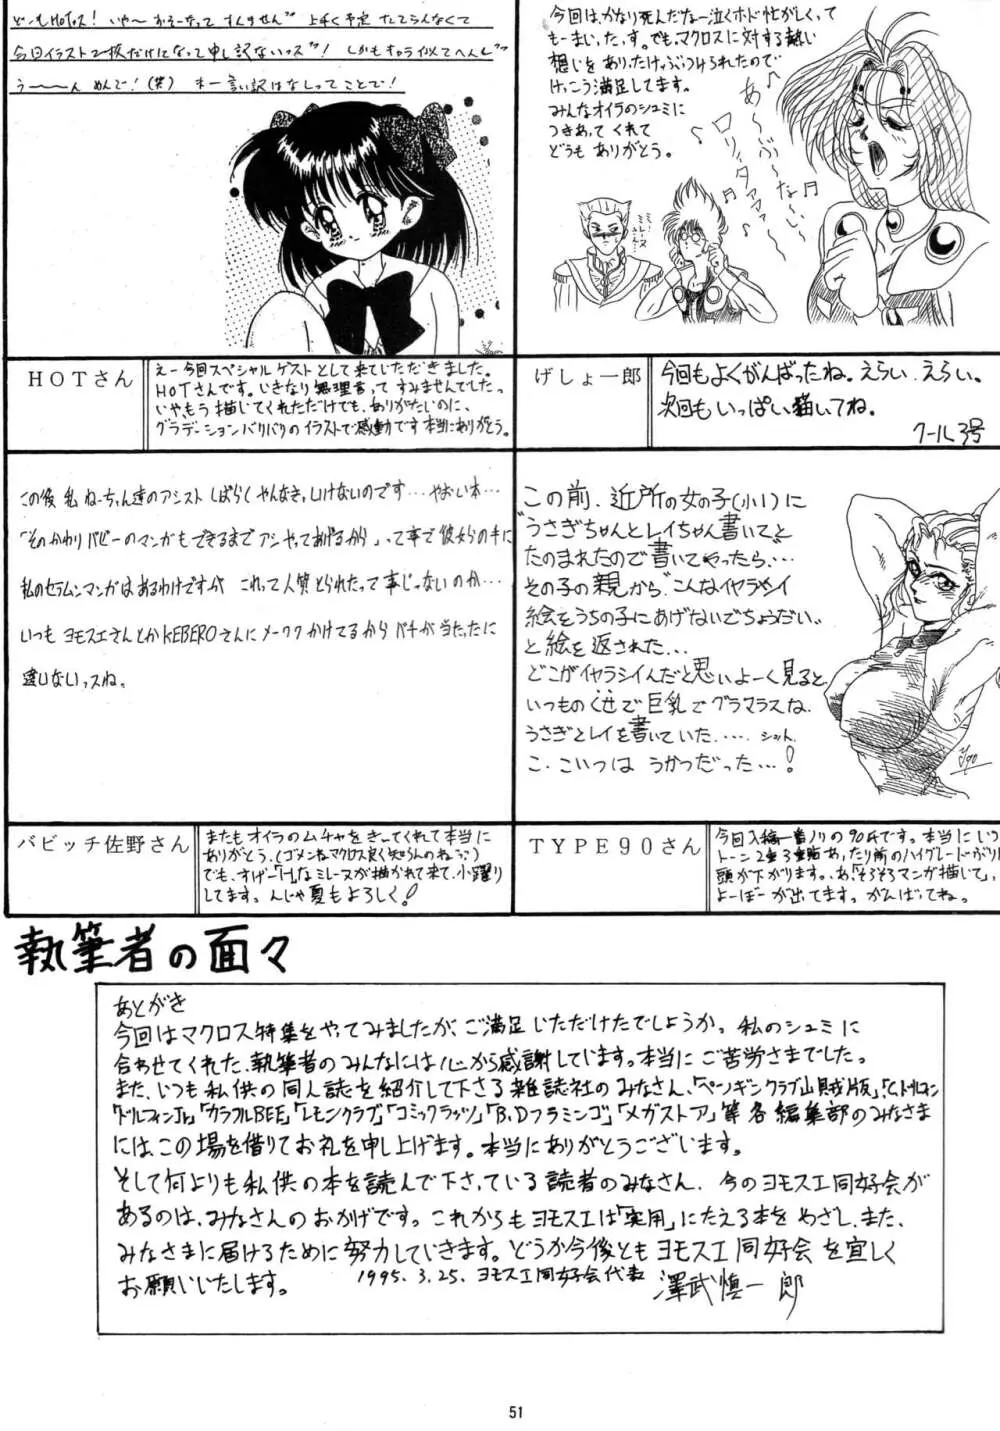 どーもHOTっス! いや〜
今回イラスト2枚だけになって申し訳ないっス"! しかもキャラ似てへんし"
う〜〜〜ん めんご!(笑) ま一言い訳はなしってことで!
今回は、かなり死んだなー泣くホド忙がしくって
もーまいったっす。でも、マクロスに対する熱い
想いをありったけ、ぶつけられたので
けっこう満足してます。
みんなオイラのシュミに
つきあって くれて
どうも ありがとう。
あ〜ぶ〜な〜い
ロリィタァァァ
HOTさん
えー今回スペシャルゲストとして来ていただきました。
HOTさんです。いきなり無理言って すみませんでしたっ
いやもう描いてくれただけでも、ありがたいのに、
グラデーションバリバリのイラストで感動です本当にありがとう。
げしょ一郎
今回もよくがんばったね。えらい、えらい。
次回も いっぱい、描いてね。
クール3号
この後 私 ねーちゃん達のアシスト しばらく やんなきゃいけないのです…やおい本…
「そのかわりバビーのマンガもできるまで アシやってあげるから」って事で彼女らの手に
私のセラムンマンガはあるわけですが これって人質とられたって事じゃないのか…
いつも ヨモスエさんとかKEBEROさんにメーワクかけてるから バチが当たったに
違いないっスね。
この前、近所の女の子(小1)に
"うさぎちゃんとレイちゃん書いて"と
たのまれたので書いてやったら…
その子の親から"こんなイヤラシイ
絵をうちの子にあげないでちょうだい"
と絵を返された…
どこがイヤラシイんだと思いよーく見ると、
いつものくせで巨乳でグラマラスな、
うさぎとレイを書いていた…… ショボん
こ、こいつは うかつだった…!
バビッチ佐野さん
またもオイラのムチャをきーてくれて本当に
ありがとう。(ゴメンねマクロス良く知らんのねっ)
でも、すげー「H」なミレーヌが描かれて来て、小躍り
してます。んじゃ夏もよろしく!
TYPE90さん
今回入稿一番ノリの90氏です。本当にいつ
トーン2重3重貼あたり前のハイグレードがり
頭が下がります。あ「そろそろマンガ描いて」
よーぼーが出てます。がんばってね。
執筆者の面々
あとがき
今回はマクロス特集をやってみましたが、ご満足いただけたでしょうか。私のシュミに
合わせてくれた、執筆者のみんなには心から感謝しています。本当にご苦労さまでした。
また、いつも私供の同人誌を紹介して下さる雑誌社のみなさん、「ペンギンクラブ山賊版」
ドルフィンJr」「カラフルBEE」「レモンクラブ」「コミックラッツ」「B,Dフラミンゴ」「メガストア」等各編集部のみなさま
には、この場を借りてお礼を申し上げます。本当にありがとうございます。
そして何よりも私供の本を読んで下さっている読者のみなさん、今のヨモスエ同好会が
あるのは、みなさんのおかげです。これからもヨモスエは「実用」にたえる本をめざし、また、
みなさまに届けるために努力していきます。どうか今後ともヨモスエ同好会を宜しく
お願いいたします。 1995.3.25.ヨモスエ同好会代表 澤武慎一郎
51